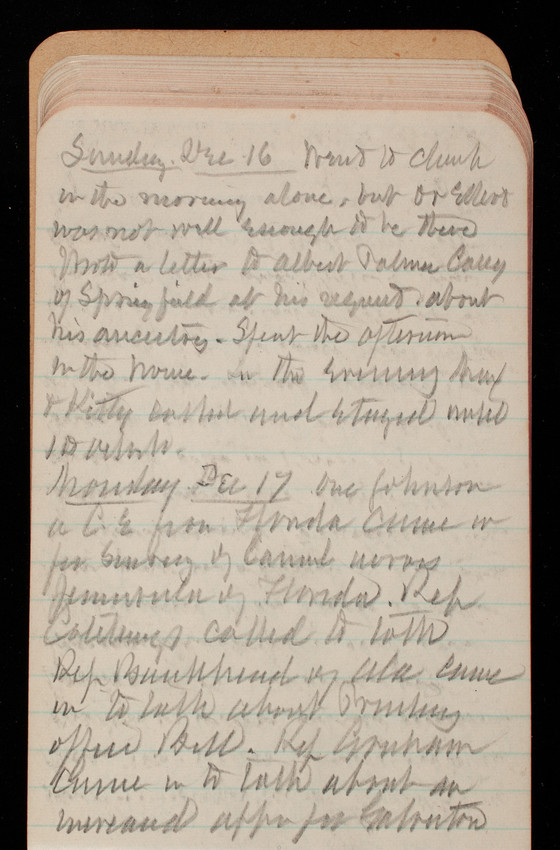 Sunday. Dec 16 Went to church
in the morning alone, but Dr Elliott
was not well enough to be there
Wrote a letter to Albert Palmer Casey
of Springfield at his request about
his ancestry. Spent the afternoon
in the house. In the evening
& Kitty called and stayed until
10 oclock.
Monday Dec 17 One Johnson
a C.E. from Florida came in
for Survey of Canal across
Peninsula of Florida. Rep
Catchings called to talk
Rep Bankhead of Ala came
in to talk about Printing
office Bill. Rep Graham
came in to talk about an
increased appn for Galveston